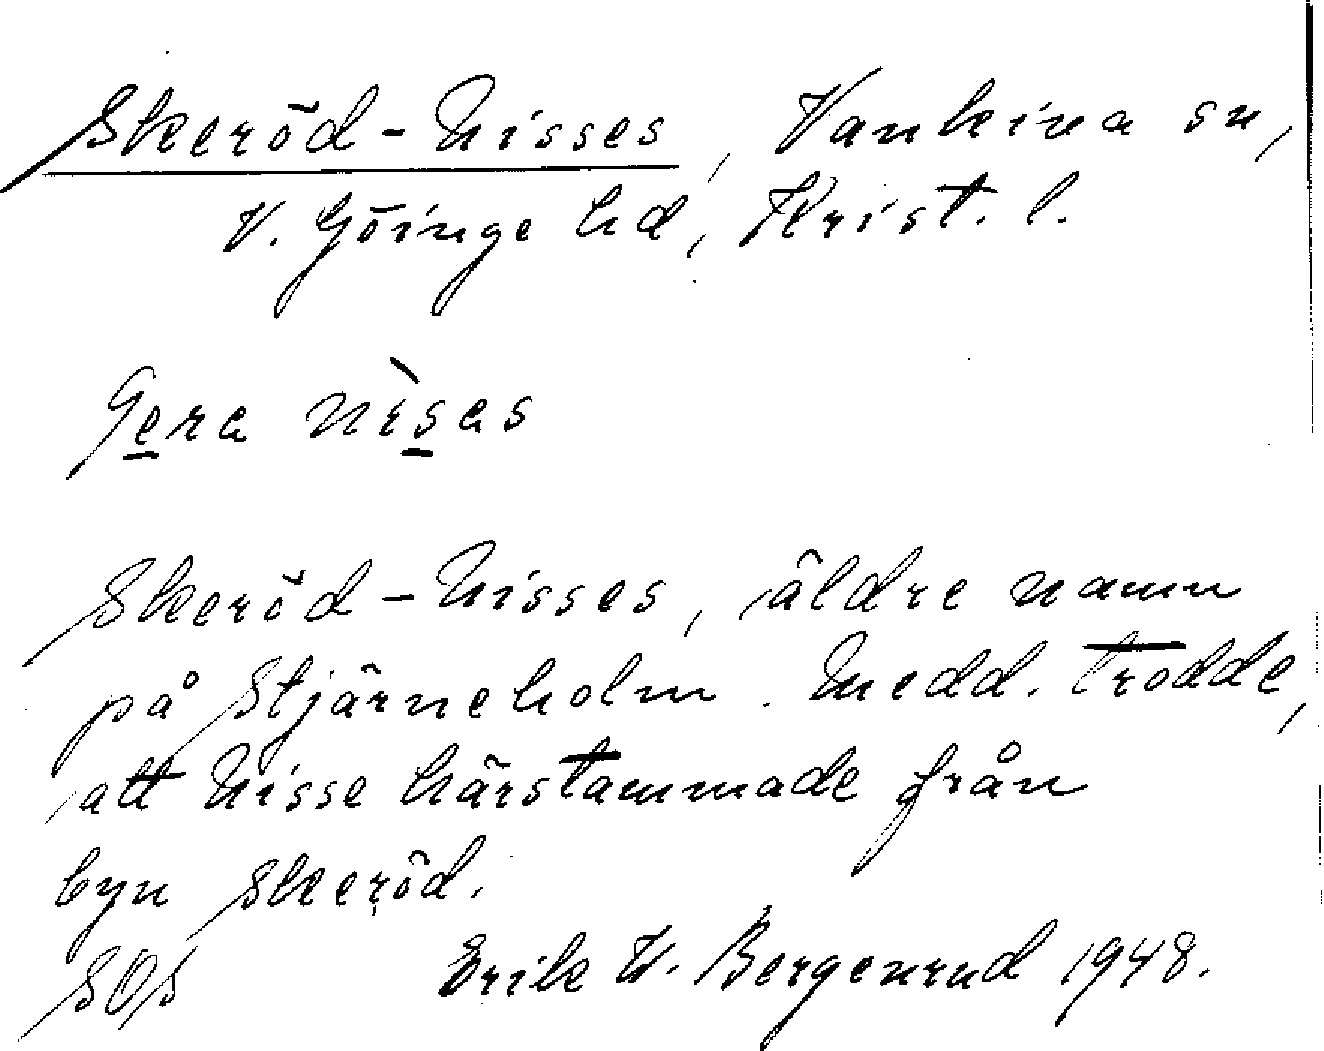 Skeröd-Nisses, Vankiva sn,
V. Göinge hd, Krist. l.
Gera nìsas
Skeröd-Nisses, äldre namn
på Stjärneholm. Medd. trodde,
att Nisse härstammade från
byn Skeröd.
SOS Erik W. Bergenrud 1948.